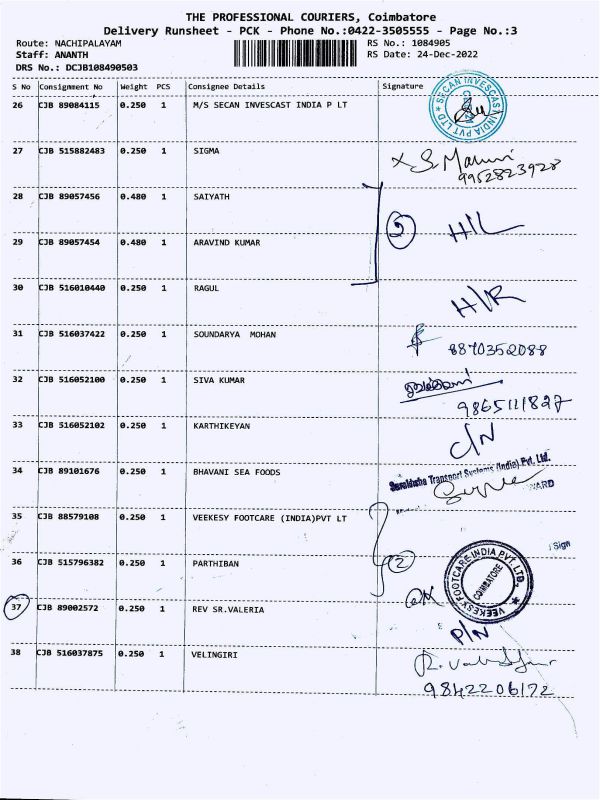 THE PROFESSIONAL COURIERS, Coimbatore
Delivery Runsheet - PCK - Phone No.:0422-3505555 - Page No.:3
Route: NACHIPALAYAM RS No.: 1084905
Staff: ANANTH RS Date: 24-Dec-2022
DRS No.: DCJB108490503
S No Consignment No Weight PCS Consignee Details Signature
26 CJB 89084115 0.250 1 M/S SECAN INVESCAST INDIA P LT
SECAN INVESCAST INDIA PVT LTD
27 CJB 515882483 0.250 1 SIGMA
9952823928
28 CJB 89057456 0.480 1 SAIYATH
2 H/L
29 CJB 89057454 0.480 1 ARAVIND KUMAR
30 CJB 516010440 0.250 1 RAGUL
H/R
31 CJB 516037422 0.250 1 SOUNDARYA MOHAN
8870352088
32 CJB 516052100 0.250 1 SIVA KUMAR
9865111827
33 CJB 516052102 0.250 1 KARTHIKEYAN
C/N
34 CJB 89101676 0.250 1 BHAVANI SEA FOODS
Transport Systems (India) Pvt. Ltd.
35 CJB 88579108 0.250 1 VEEKESY FOOTCARE (INDIA)PVT LT
Sign
36 CJB 515796382 0.250 1 PARTHIBAN
2
VEEKESY FOOTCARE INDIA PVT. LTD.
COIMBATORE
37 CJB 89002572 0.250 1 REV SR.VALERIA
P/N
38 CJB 516037875 0.250 1 VELINGIRI
9842206172